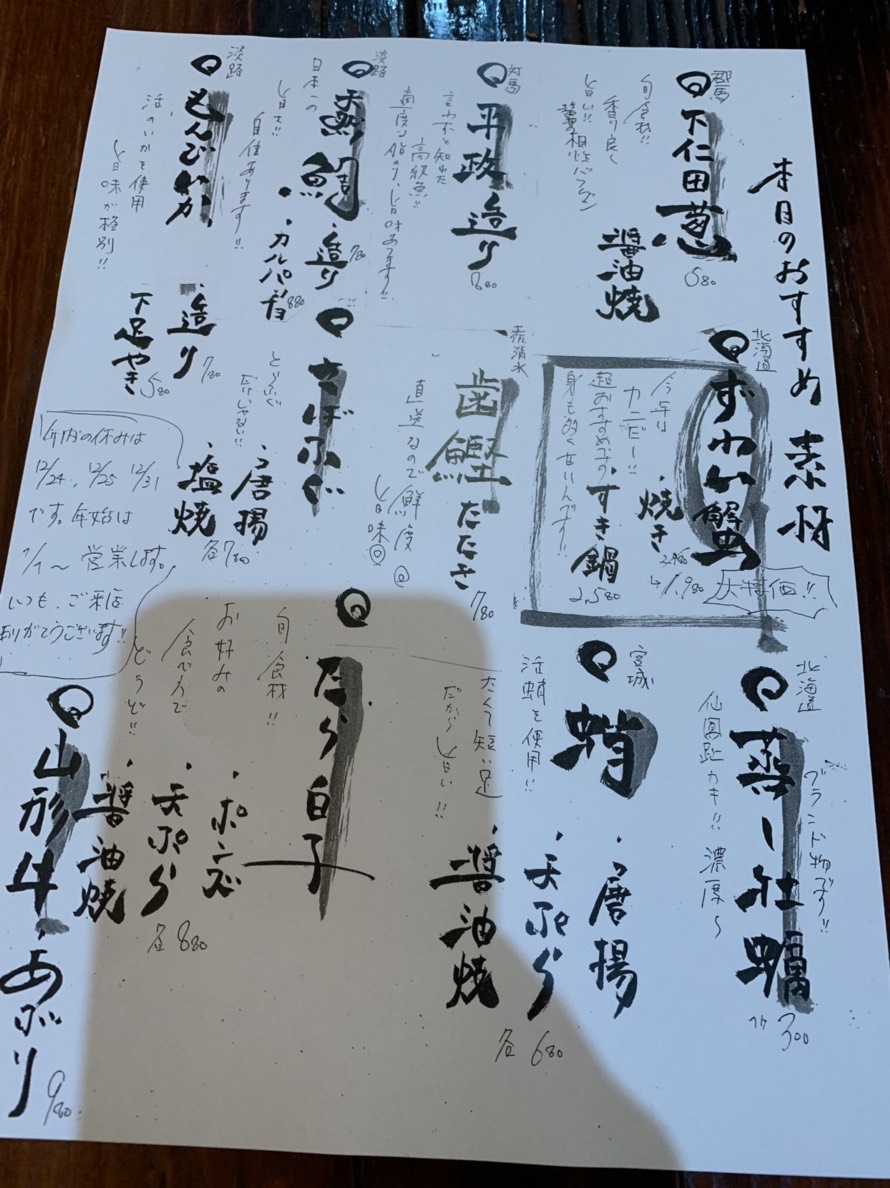 本日のおすすめ 素材
群馬
下仁田葱
旬食材!!
香り良く
旨い!!
醤油相性バツグン
醤油焼
580
対馬
平政造り
言わずと知れた
高級魚!!
旨味あります!!
淡路
鯛
造り
780
・カルパッチョ
880
日本一の
旨さ!!
自信あります!!
淡路
もんごいか
活のいかを使用
旨味が格別!!
・造り
780
下足やき
580
北海道
ずわい蟹
今年は
カニだー!!
超おすすめです。
身も多くないんです!!
・焼き
1,980
すき鍋
2,580
大特価!!
歯鰹たたき
直送なので鮮度◎
旨味◎
780
さばふぐ
・唐揚
・塩焼
各780
年内の休みは
12/24、12/25 12/31
です。年始は
1/1〜営業します。
いつも、ご来店
ありがとうございます!!
北海道
蒸し牡蠣
ブランド物です!!
仙鳳趾カキ!! 濃厚〜
1ケ 300
宮城
蛸
活蛸を使用!!
太くて短い足
だから旨い!!
・唐揚
・天ぷら
・醤油焼
各680
たら白子
旬食材!!
お好みの
食べ方で
どうぞ!!
・ポンズ
・天ぷら
・醤油焼
各880
山形牛あぶり
980